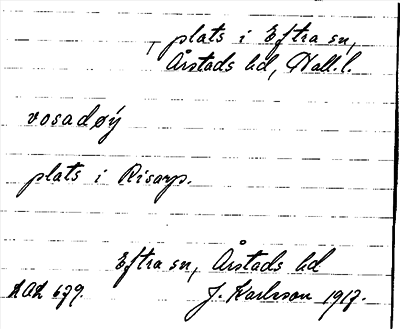 plats i Eftra sn,
Årstads hd, Hall. l.
vosadøý
plats i Risarp.
Eftra sn, Årstads hd
679. J. Karlsson 1917.